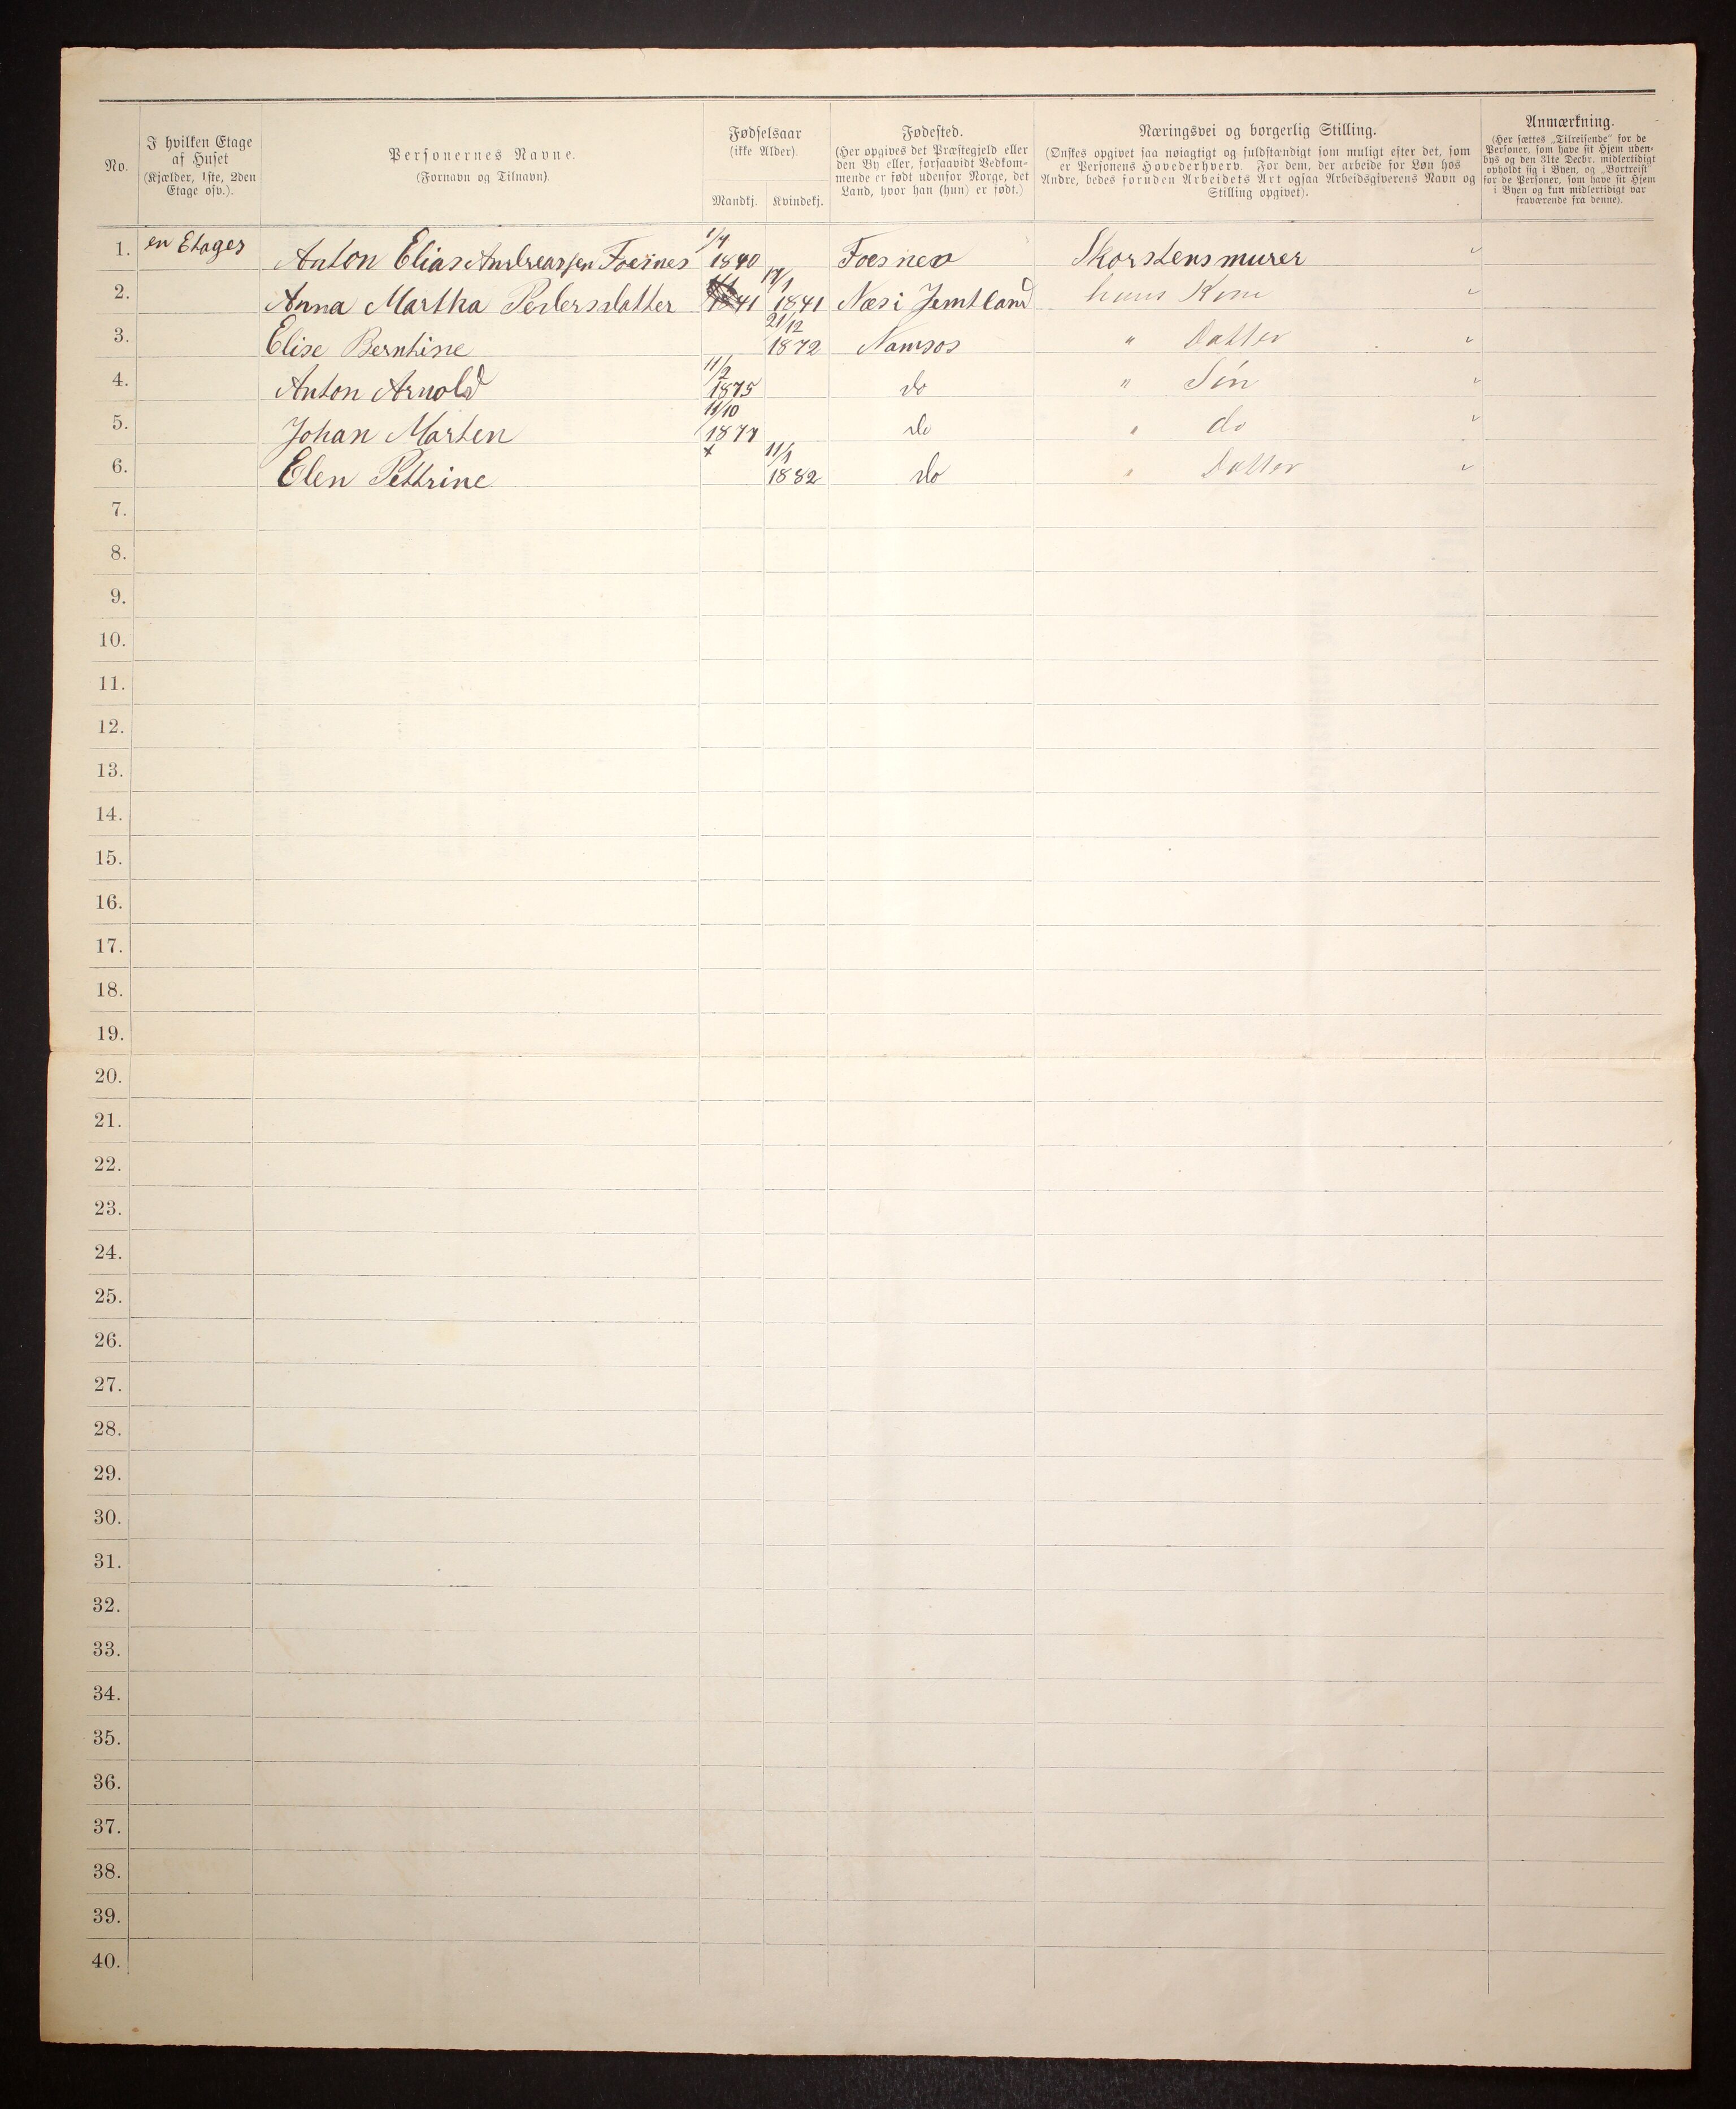 No.
I hvilken Etage
af Huset
(Kjælder, 1ste, 2den
Etage osv.).
Personernes Navne.
(Fornavn og Tilnavn).
Fødselsaar
(ikke Alder).
Mandkj. Kvindekj.
Fødested.
(Her opgives det Præstegjeld eller
den By eller, forsaavidt Vedkom-
mende er født udenfor Norge, det
Land, hvor han (hun) er født.)
Næringsvei og borgerlig Stilling.
(Ønskes opgivet saa nøiagtigt og fuldstændigt som muligt efter det, som
er Personens Hovederhverv. For dem, der arbeide for Løn hos
Andre, bedes foruden Arbeidets Art ogsaa Arbeidsgiverens Navn og
Stilling opgivet).
Anmærkning.
(Her sættes „Tilreisende" for de
Personer, som have sit Hjem uden-
bys og den 31te Decbr. midlertidigt
opholdt sig i Byen, og „Bortreist"
for de Personer, som have sit Hjem
i Byen og kun midlertidigt var
fraværende fra denne).
1. en Etages Anton Elias Andreassen Foesnes 1/4 1840 Foesnes Skorstensmurer
2. Anna Martha Pedersdatter 1841 Næs i Jemtland hans Kone
3. Elise Bernhine 21/12 1872 Namsos " Datter
4. Anton Arnold 11/2 1875 do " Sön
5. Johan Marten 11/10 1877 do " do
6. Elen Pettrine 11/1 1882 do " Datter
7.
8.
9.
10.
11.
12.
13.
14.
15.
16.
17.
18.
19.
20.
21.
22.
23.
24.
25.
26.
27.
28.
29.
30.
31.
32.
33.
34.
35.
36.
37.
38.
39.
40.